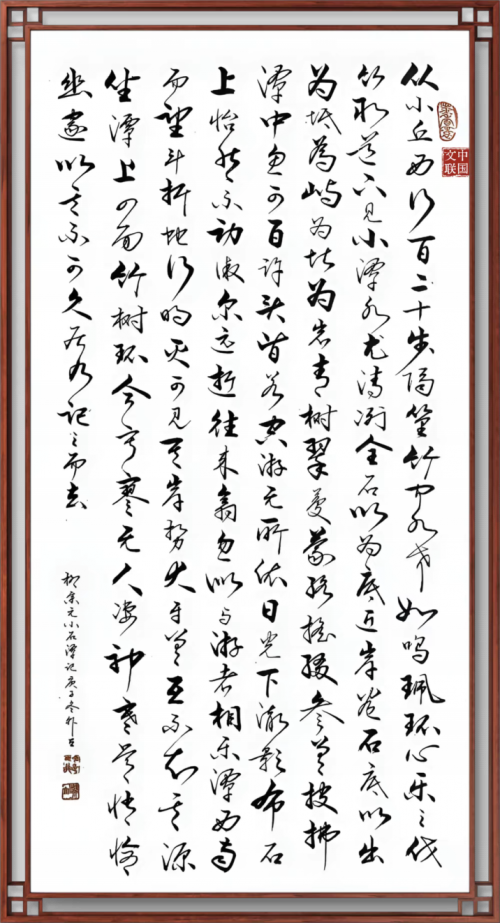 从小丘西行百二十步隔篁竹闻水声如鸣珮环心乐之伐
竹取道下见小潭水尤清冽全石以为底近岸卷石底以出
为坻為屿为嵁为岩青树翠蔓蒙络摇缀参差披拂
潭中鱼可百许头皆若空游无所依日光下澈影布石
上怡然不动俶尔远逝往来翕忽似与游者相乐潭西南
而望斗折蛇行明灭可见其岸势犬牙差互不可知其源
坐潭上四面竹树环合寂寥无人凄神寒骨悄怆
幽邃以其不可久居乃记之而去
柳宗元小石潭记庚子冬
中国文联